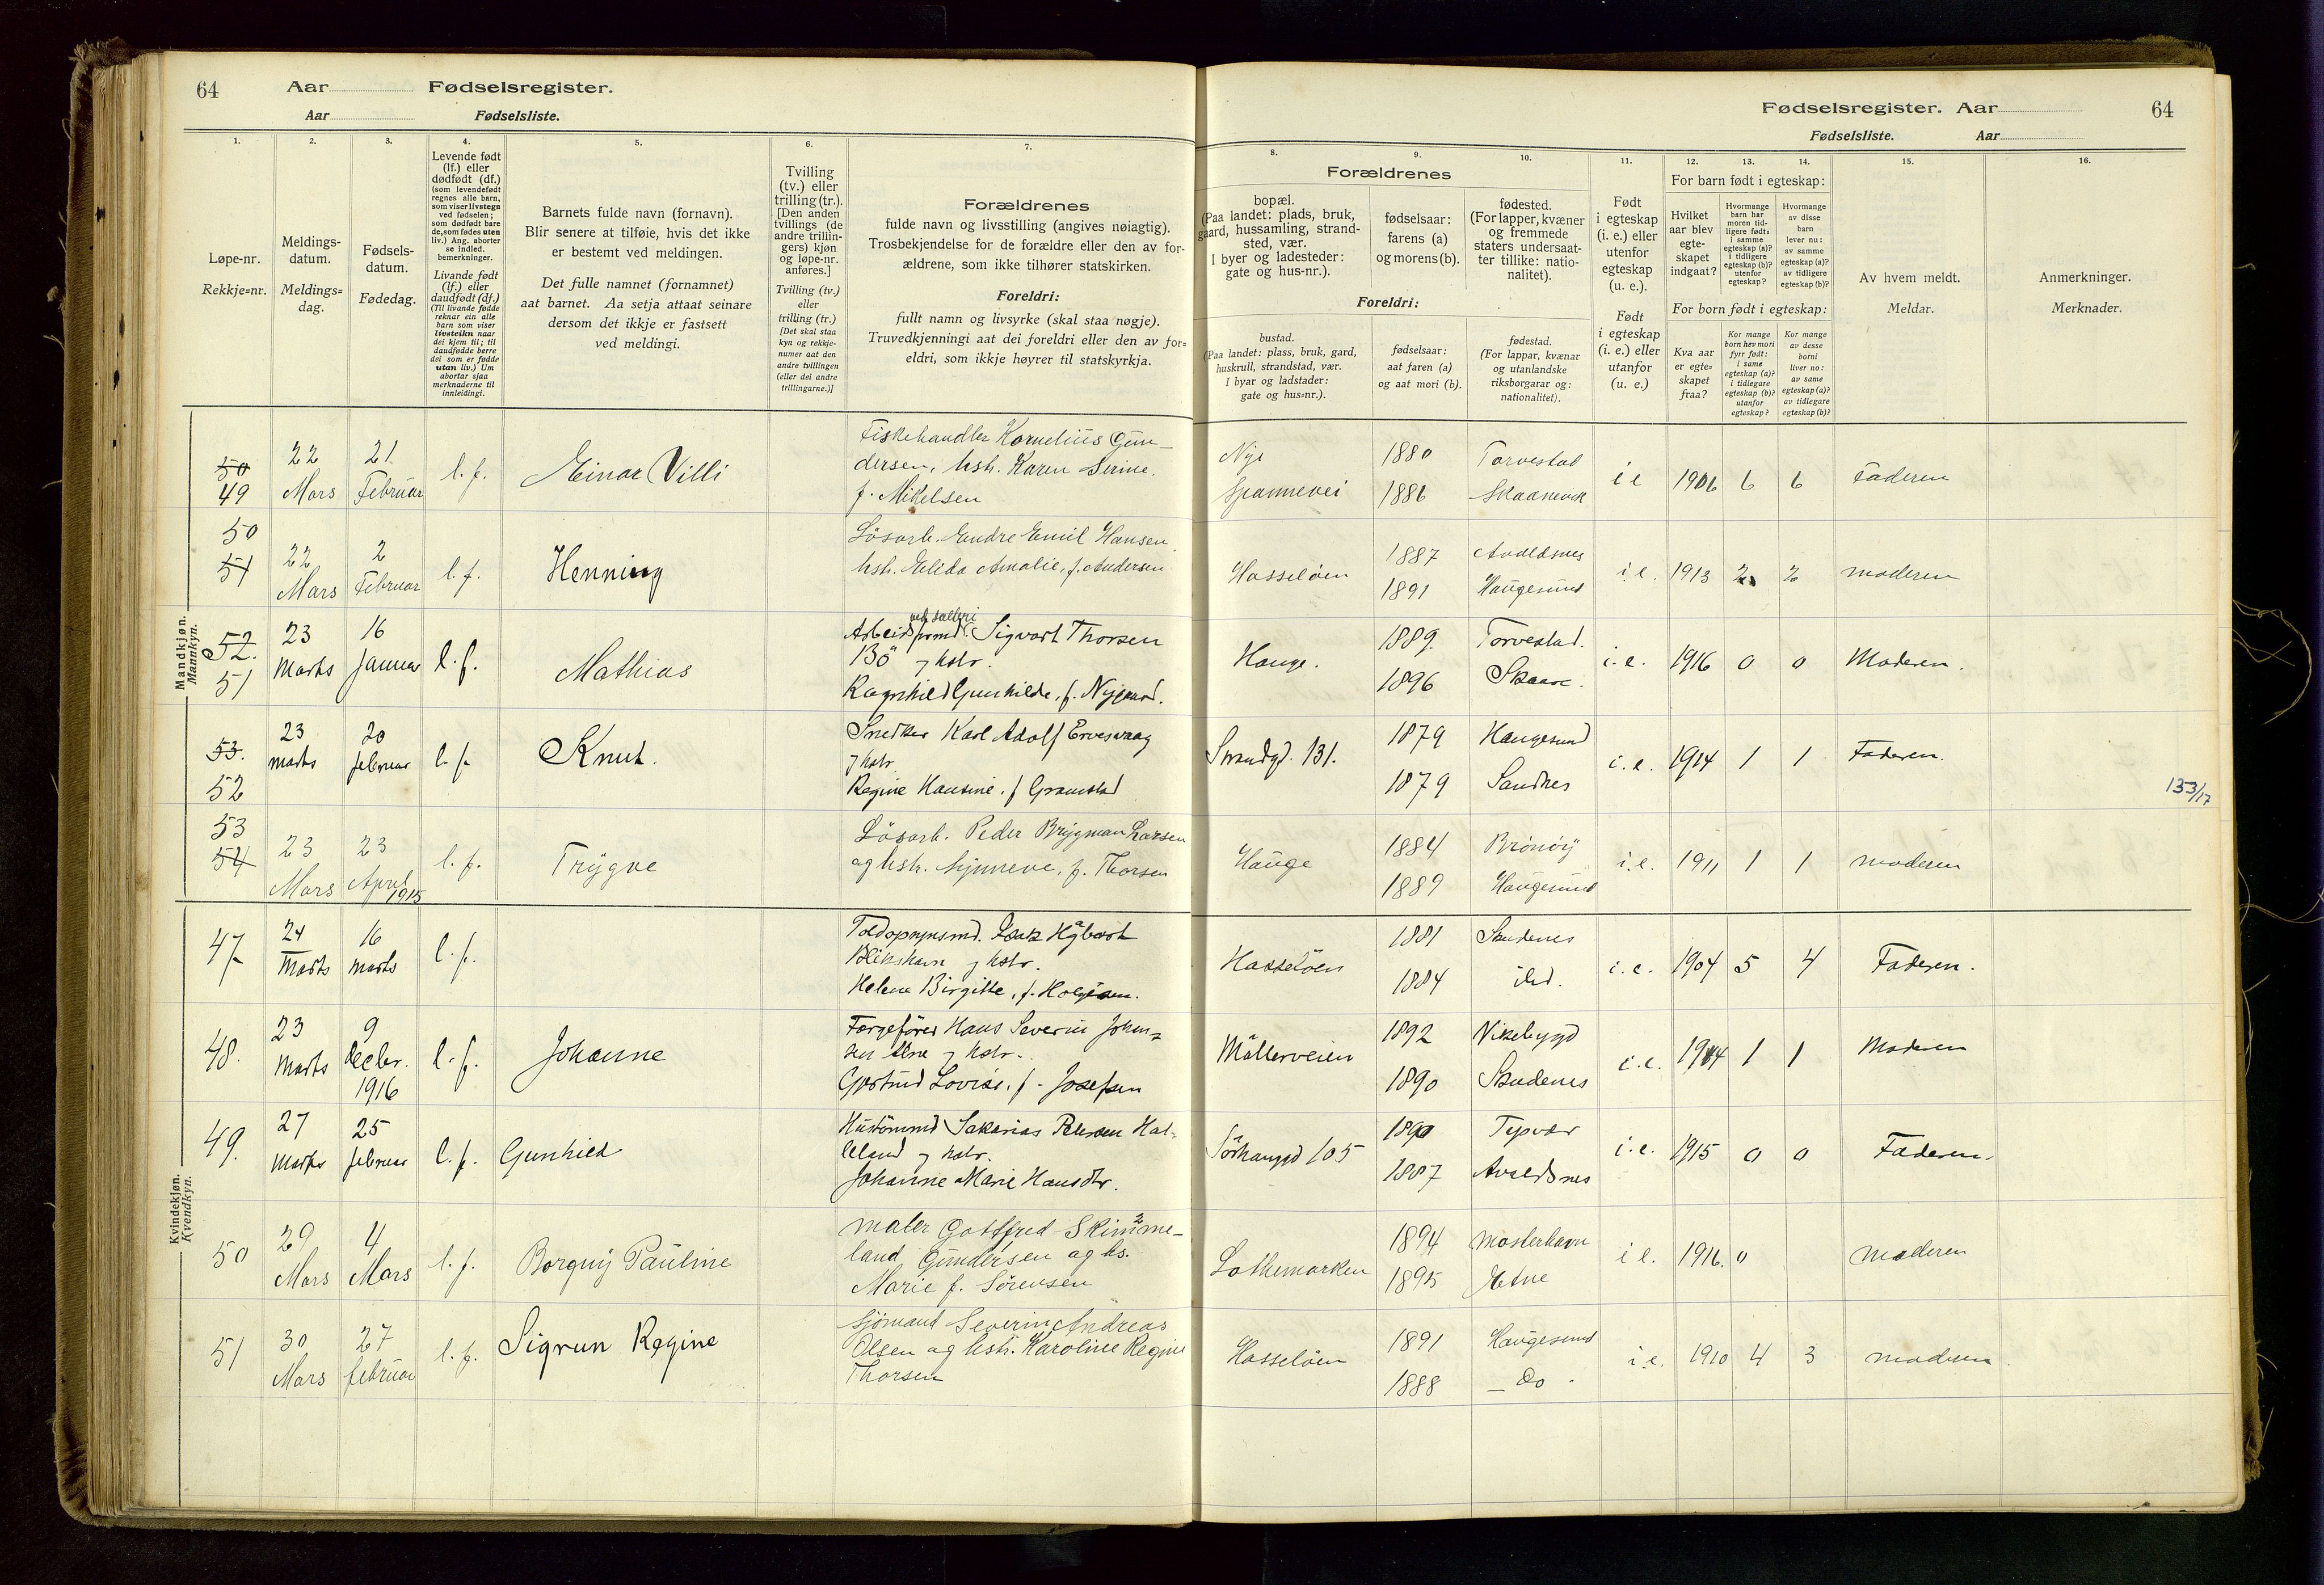 64 Aar Fødselsregister.
Aar Fødselsliste.
Fødselsregister. Aar 64
Fødselsliste. Aar
1. 2. 3. 4. 5. 6. 7. 8. 9. 10. 11. 12. 13. 14. 15. 16.
Løpe-nr.
Rekkje=nr.
Meldings-
datum.
Meldings=
dag.
Fødsels-
datum.
Fødedag.
Levende født
(lf.) eller
dødfødt (df.)
(som levendefødt
regnes alle barn,
som viser livstegn
ved fødselen;
som dødfødt bare
de, som fødes uten
liv.) Ang. aborter
se indled.
bemerkninger.
Livande født
(lf.) eller
daudfødt (df.)
(Til livande fødde
reknar ein alle
barn som viser
livsteikn naar
dei kjem til; til
daudfødde berre
dei som er fødde
utan liv.) Um
abortar sjaa
merknaderne til
innleidingi.
Barnets fulde navn (fornavn).
Blir senere at tilføie, hvis det ikke
er bestemt ved meldingen.
Det fulle namnet (fornamnet)
aat barnet. Aa setja attaat seinare
dersom det ikkje er fastsett
ved meldingi.
Tvilling
(tv.) eller
trilling (tr.).
[Den anden
tvillings (de
andre trillin-
gers) kjøn
og løpe-nr.
anføres.]
Tvilling (tv.)
eller
trilling (tr.)
[Det skal staa
kyn og rekkje-
numer aat den
andre tvillingen
(eller dei andre
trillingarne.)]
Forældrenes
fulde navn og livsstilling (angives nøiagtig).
Trosbekjendelse for de forældre eller den av for-
ældrene, som ikke tilhører statskirken.
Foreldri:
fullt namn og livsyrke (skal staa nøgje).
Truvedkjenningi aat dei foreldri eller den av for=
eldri, som ikkje høyrer til statskyrkja.
Forældrenes
bopæl.
(Paa landet: plads, bruk,
gaard, hussamling, strand-
sted, vær.
I byer og ladesteder:
gate og hus-nr.).
fødselsaar:
farens (a)
og morens (b).
fødested.
(For lapper, kvæner
og fremmede
staters undersaat-
ter tillike: natio-
nalitet).
Foreldri:
bustad.
(Paa landet: plass, bruk, gard,
huskrull, strandstad, vær.
I byar og ladstader:
gate og hus=nr.).
fødselsaar:
aat faren (a)
og aat mori (b).
fødestad.
(For lappar, kvænar
og utanlandske
riksborgarar og:
nationalitet).
Født
i egteskap
(i. e.) eller
utenfor
egteskap
(u. e.).
Født
i egteskap
(i. e.) eller
utanfor
(u. e.)
For barn født i egteskap:
Hvilket
aar blev
egte-
skapet
indgaat?
Hvormange
barn har
moren tid-
ligere født:
i samme
egteskap (a)?
i tidligere
egteskap (b)?
utenfor
egteskap?
Hvormange
av disse
barn
lever nu:
av samme
egteskap (a)?
av tidligere
egteskap (b)?
For born født i egteskap:
Kva aar
er egte=
skapet
fraa?
Kor mange
born hev mori
fyrr født:
i same
egteskap (a)?
i tidlegare
egteskap (b)?
utanfor
egteskap?
Kor mange
av desse
borni
liver no:
av same
egteskap (a)?
av tidlegare
egteskap (b)?
Av hvem meldt.
Meldar.
Anmerkninger.
Merknader.
Mandkjøn.
Mannkyn.
50 49 22 Mars 21. Februar l. f. Einar Villi
Fiskehandler Kornelius Gun-
dersen, hstr. Karen Serine,
f. Mikelsen
Nye Spannevei 1880 1886 Torvestad Skaanevik i e 1906 6 6 Faderen
50 51 22 Mars 2 Februar l. f. Henning
Løsarb. Endre Emil Hansen,
hstr. Elida Amalie, f. Andersen
Hasseløen 1887 1891 Avaldsnes Haugesund i. e. 1913 2 2 moderen
52. 51 23 Marts 16 Januar l. f. Mathias
Arbeidsformd. Sigvart Thorsen
Bö og hstr.
Ragnhild Gunhilde, f. Nygaard.
Hauge. 1889. 1896 Torvestad. Skaare. i. e. 1916 0 0 Moderen.
53. 52 23 marts 20 februar l. f. Knut.
Snedker Karl Adolf Ervesvaag
og hstr.
Regine Hansine, f Gramstad
Strandgd. 131. 1879 1879 Haugesund Sandnes i. e. 1914 1 1 Faderen.
153/17
53 54 23 Mars 23 April 1915 l. f. Trygve
Løsarb. Peder Brygman Larsen
og hstr. Synneve, f. Thorsen
Hauge 1884 1889 Brönöy Haugesund i. e. 1911 1 1 moderen
Kvindekjøn.
Kvendkyn.
47 24 Marts 16 marts l. f.
Toldopsynsmd.
og hstr.
Helene Birgitte, f. Holgersen.
Hasselöen 1881 1884 Skudenes ibd. i. e. 1904 5 4 Faderen.
48. 23 Marts 9 decbr. 1916 l. f. Johanne
Færgefører Hans Severin Johan=
sen og hstr.
Gertrud Lovise, f. Josefsen
Möllerveien 1892 1890 Vikebygd Skudenes i. e. 1914 1 1 Moderen
49. 27 Marts 25 februar l. f. Gunhild
Sakarias Petersen Hat-
leland og hstr.
Johanne Marie Hansdtr.
Sörhauggd 105 1890 1887 Tysvær Avaldsnes i. e. 1915 0 0 Faderen.
50 29 Mars 4 Mars l. f. Borguy Pauline
maler Gottfred Skimme-
land Gundersen og hs.
Marie f. Sørensen
Lothemarken 1894 1895 Mosterhavn Etne i e. 1916. 0 moderen
51 30 Mars 27 februar l. f. Sigrun Regine
Sjømand Severin Andreas
Olsen og hstr. Karoline Regine
Thorsen
Hasseløen 1891 1888 Haugesund - Do - i. e. 1910 4 3 moderen